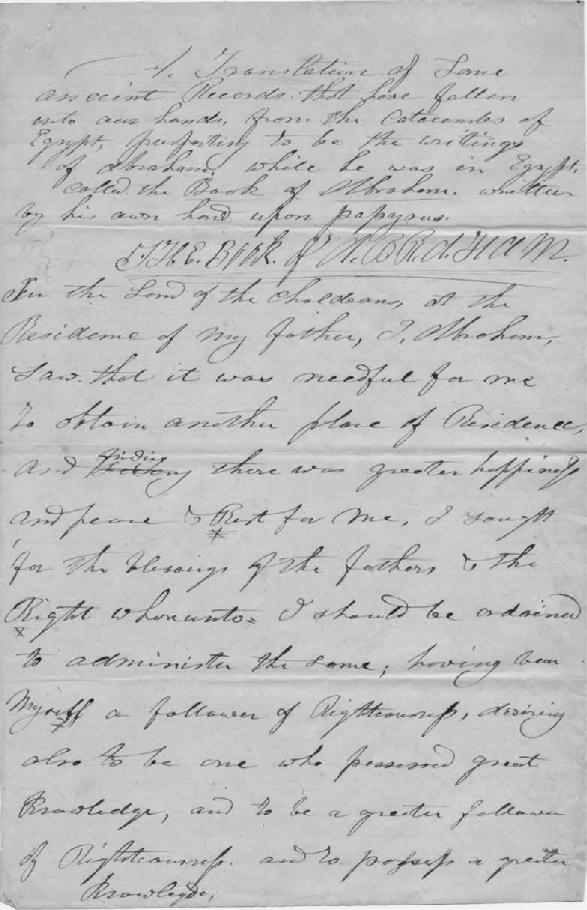 A Translation of Some
ancient Records that have fallen
into our hands, from the Catecombs of
Egypt, purporting to be the writings
of Abraham, while he was in Egypt,
called the Book of Abraham. written
by his own hand upon papyrus.
THE. BOOK. of A.B.R.A.H.A.M.
In the Land of the Chaldeans, at the
Residence of my father, I, Abraham,
Saw. that it was needful for me
to obtain another place of Residence,
and finding there was greater happiness
and peace & Rest for me, I sought
for the blessings of the fathers & the
Right whereunto I should be ordained
to administer the same; having been
Myself a follower of Righteousness, desiring
also to be one who possessed great
Knowledge, and to be a greater follower
of Righteousness. and to possess a greater
Knowledge,